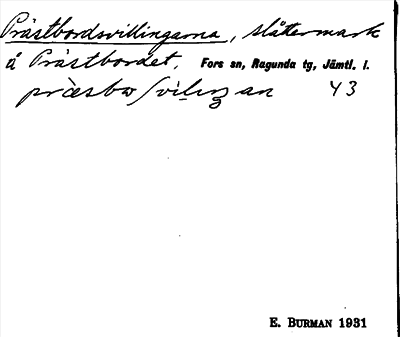 Prästbordsvillingarna, slåttermark
å Prästbordet. Fors sn, Ragunda tg, Jämtl. l.
43
E. BURMAN 1931